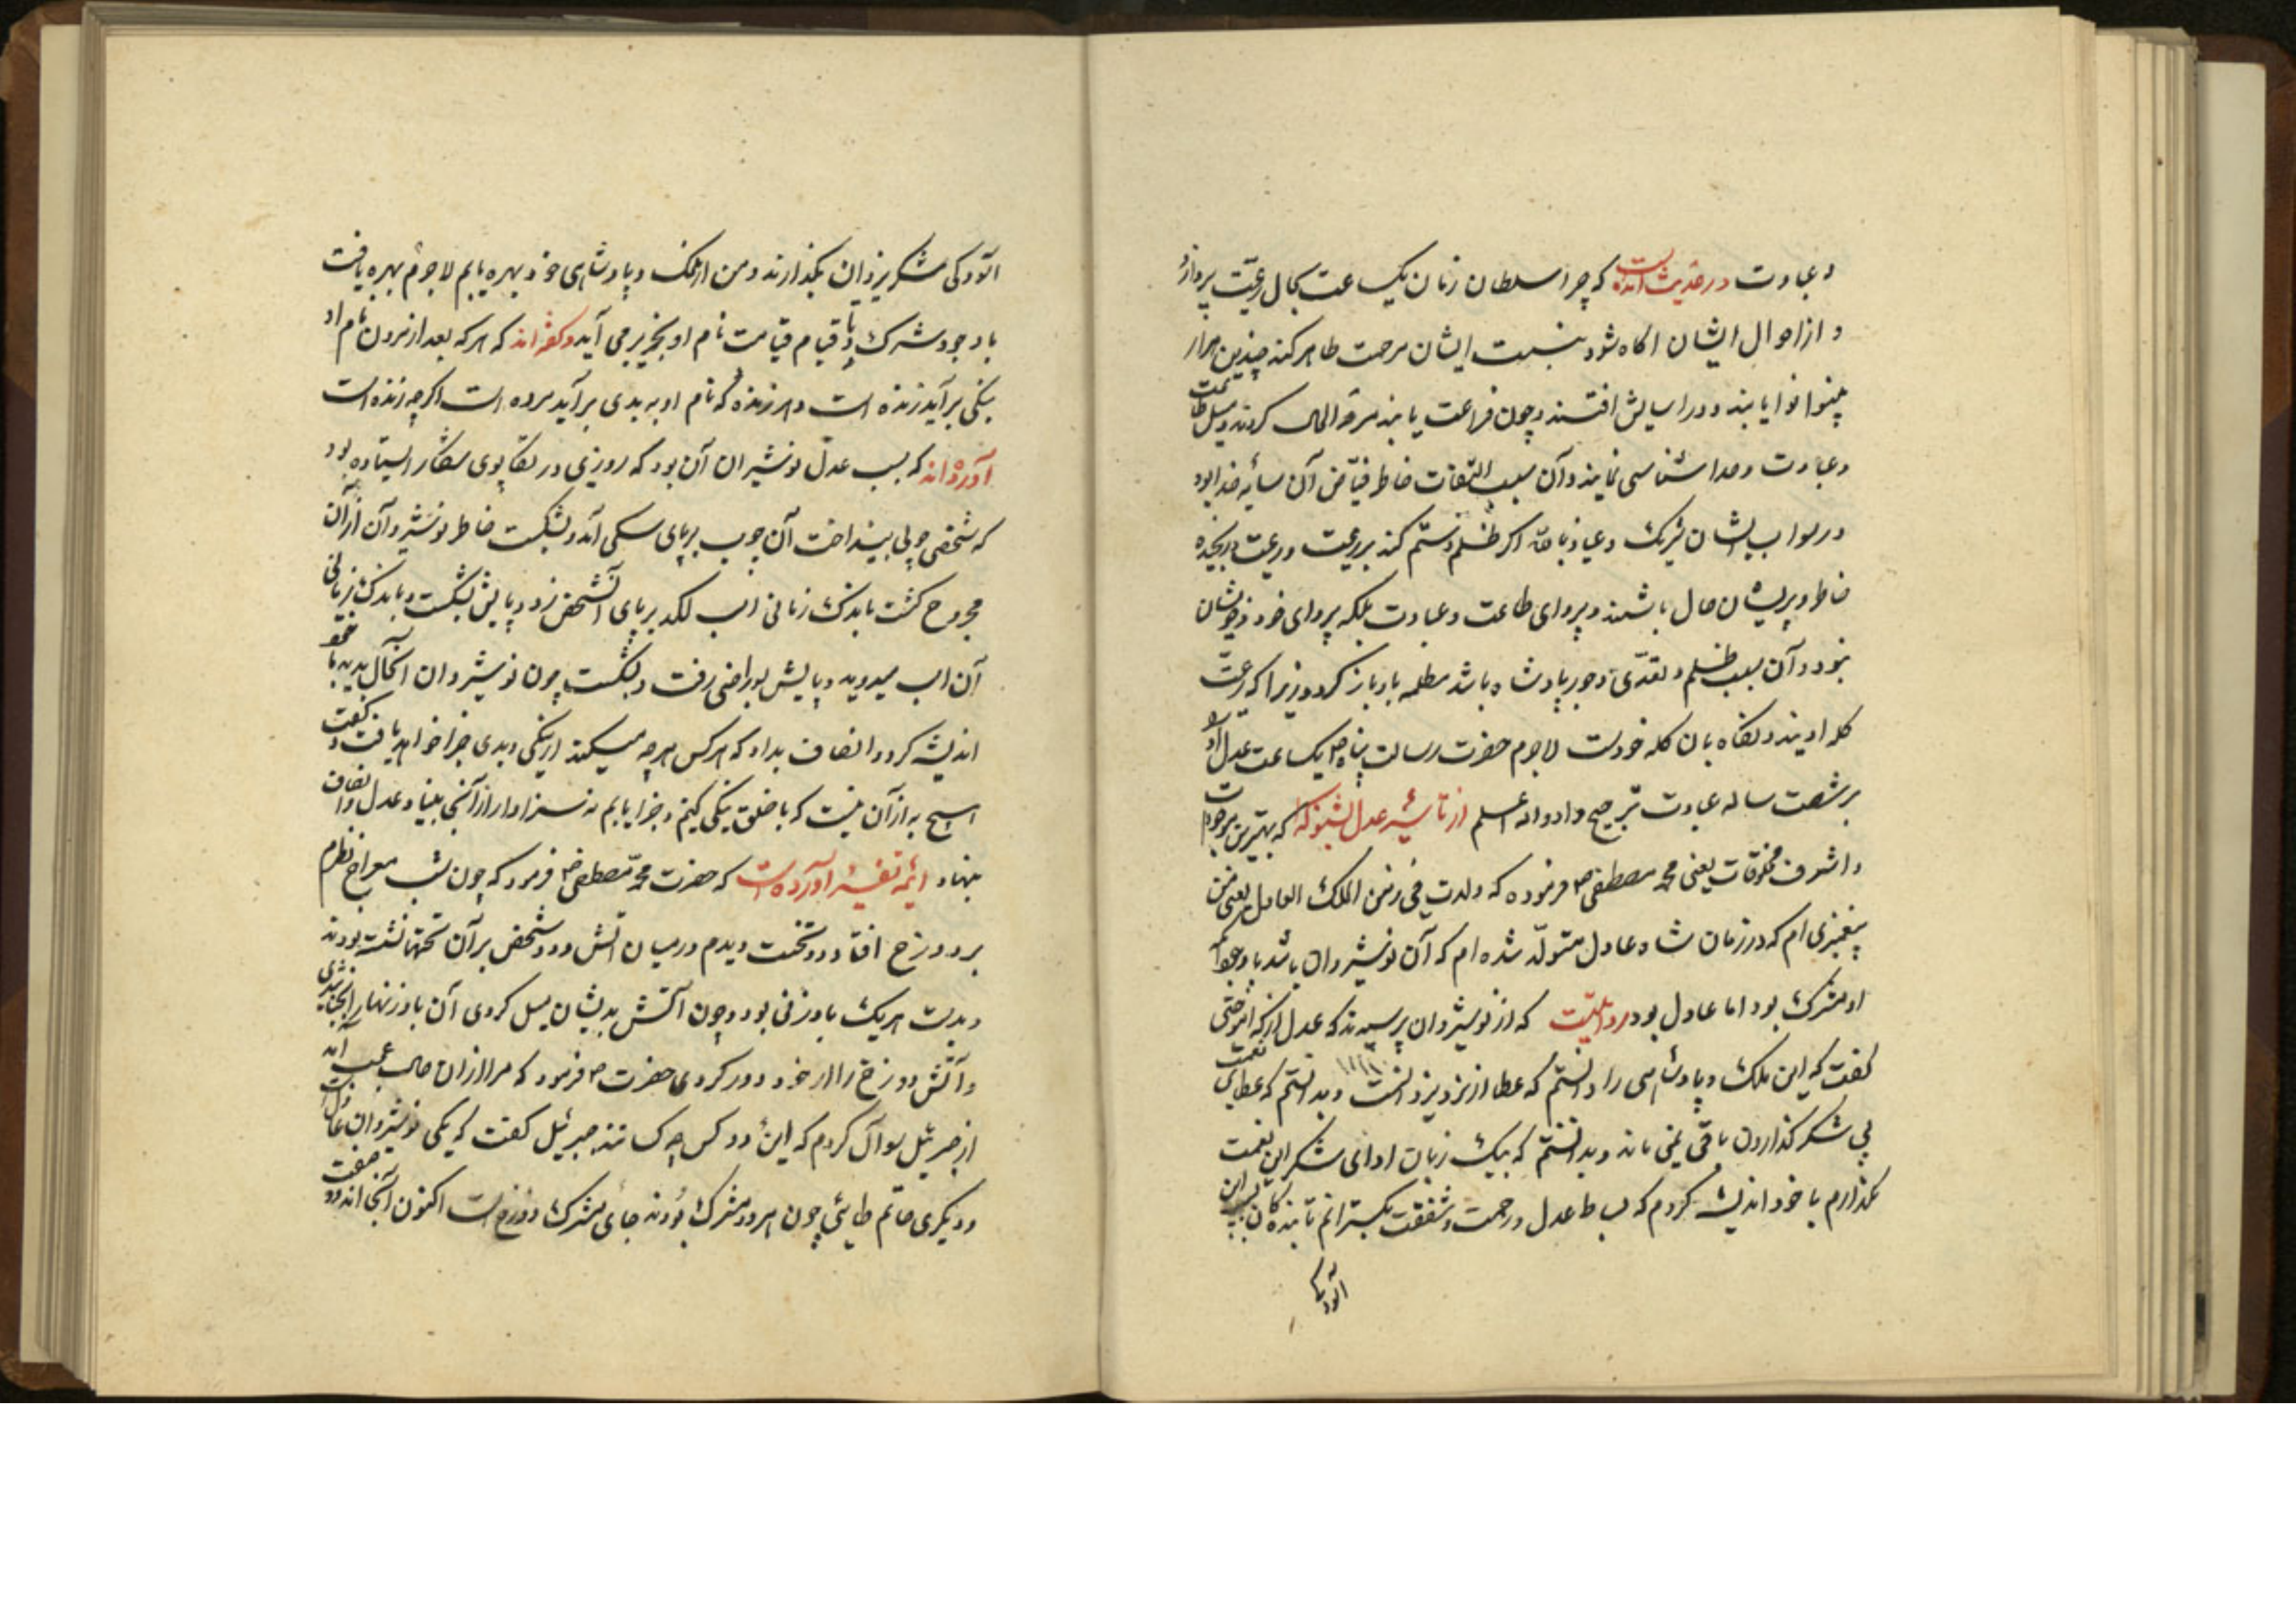 و عبادت در حدیث آمده است که چرا سلطان زمان یکساعت بحال رعیت پردازد
و از احوال ایشان اکاه شود بنسبت ایشان مرحمت ظاهر کند چندین هزار
بینوا نوا یابند و در اسایش افتند و چون فراغت یابند کردند و میل طاعت
و عبادت و خدا شناسی نمایند و آن بسبب التفات خاطر فیّاض آن سایه خدا بود
در ثواب بایشان شریک و عیاذ بالله اکر ظلم و ستم کند بر رعیت و رعیت رنجیده
خاطر و پریشان حال باشند و پروای طاعت و عبادت بلکه پروای خود و خویشان
نبود و آن بسبب ظلم و تعدّی و جور پادشاه باشد مظلمه باو باز کردد زیرا که رعیّت
کله اویند و نکاه بان کله خودست لاجرم حضرت رسالت پناه ص یکساعت عدل او را
بر شصت ساله عبادت ترجیح داد والله اعلم از تأثیر عدل بشنو که که بهترین موجودات
و اشرف مخلوقات یعنی محمد مصطفی ص فرموده که ولدت فی زمن الملک العادل یعنی من
پیغمبری ام که در زمان شاه عادل متولّد شده ام که آن نوشیروان باشد با وجود آنکه
او مشرک بود اما عادل بود روایتست که از نوشیروان پرسیدند که عدل از که آموختی
کفت که این ملک و پادشاهی را دانستم که عطا از نزد یزدانست و بدانستم که عطای نعمت
بی شکر کذاردن باقی نمی ماند و بدانستم که بیک زبان ادای شکر این نعمت
بکذارم با خود اندیشه کردم که بساط عدل و رحمت و شفقت بکسترانم تا بندکان بسبب این
آسودکی
آسودکی شکر یزدان بکذارند و من از ملک و پادشاهی خود بهره یابم لاجرم بهره یافت
با وجود شرک تا قیام قیامت نام او بخیر بر می آید و کفته اند که هر که بعد از مردن نام او
بنیکی برآید زنده است و هر زنده که نام او به بدی برآید مرده است اکرچه زنده است
آورده اند که سبب عدل نوشیروان آن بود که روزی در تکاپوی شکار ایستاده بود
که شخصی چوبی بینداخت آن چوب بر پای سکی آمد و بشکست خاطر نوشیروان از آن
مجروح کشت باندک زمانی اسب لکد بر پای آنشخص زد و پایش بشکست و باندک زمانی
آن اسب میدوید و پایش بسوراخی رفت و بشکست چون نوشیروان آنحال بدید با خود
اندیشه کرد و انصاف بداد که هر کس هرچه میکند از نیکی و بدی جزا خواهد یافت و کفت
هیچ به از آن نیست که با خلق نیکی کنیم و جزا یابیم نه سزا و از آنجا بنیاد عدل و انصاف
بنهاد ائمّه تفسیر آورده است که حضرت محمّد مصطفی ص فرمود که چون شب معراج نظرم
بر دوزخ افتاد دو تخت دیدم در میان آتش و دو شخص بر آن تختها نشسته بودند
و بدست هر یک باد زنی بود و چون آتش بدیشان میل کردی آن باد زنها را بجنبانیدندی
و آتش دوزخ را از خود دور کردی حضرت ص فرمود که مرا از آن حال عجب آمد
از جبرئیل سوال کردم که این دو کس چه کسانند جبرئیل کفت که یکی نوشیروان عادل است
و دیکری حاتم طائی چون هر دو مشرک بودند جای مشرک دوزخ است اکنون آنجا اند و دو صفت